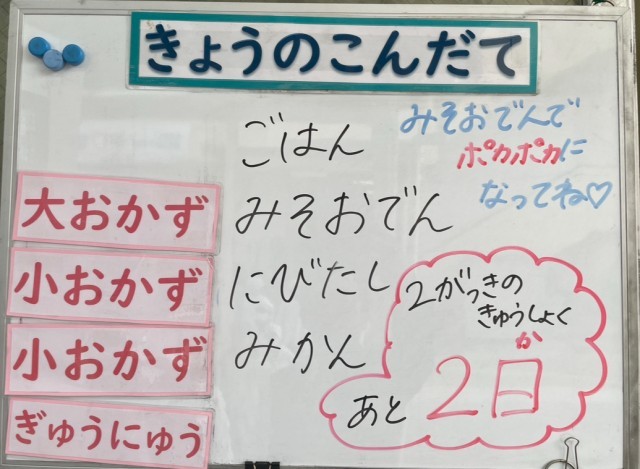 きょうのこんだて
ごはん
みそおでんで
ポカポカに
なってね♡
大おかず みそおでん
小おかず にびたし
小おかず みかん
ぎゅうにゅう
2がっきの
きゅうしょく
か
あと 2日